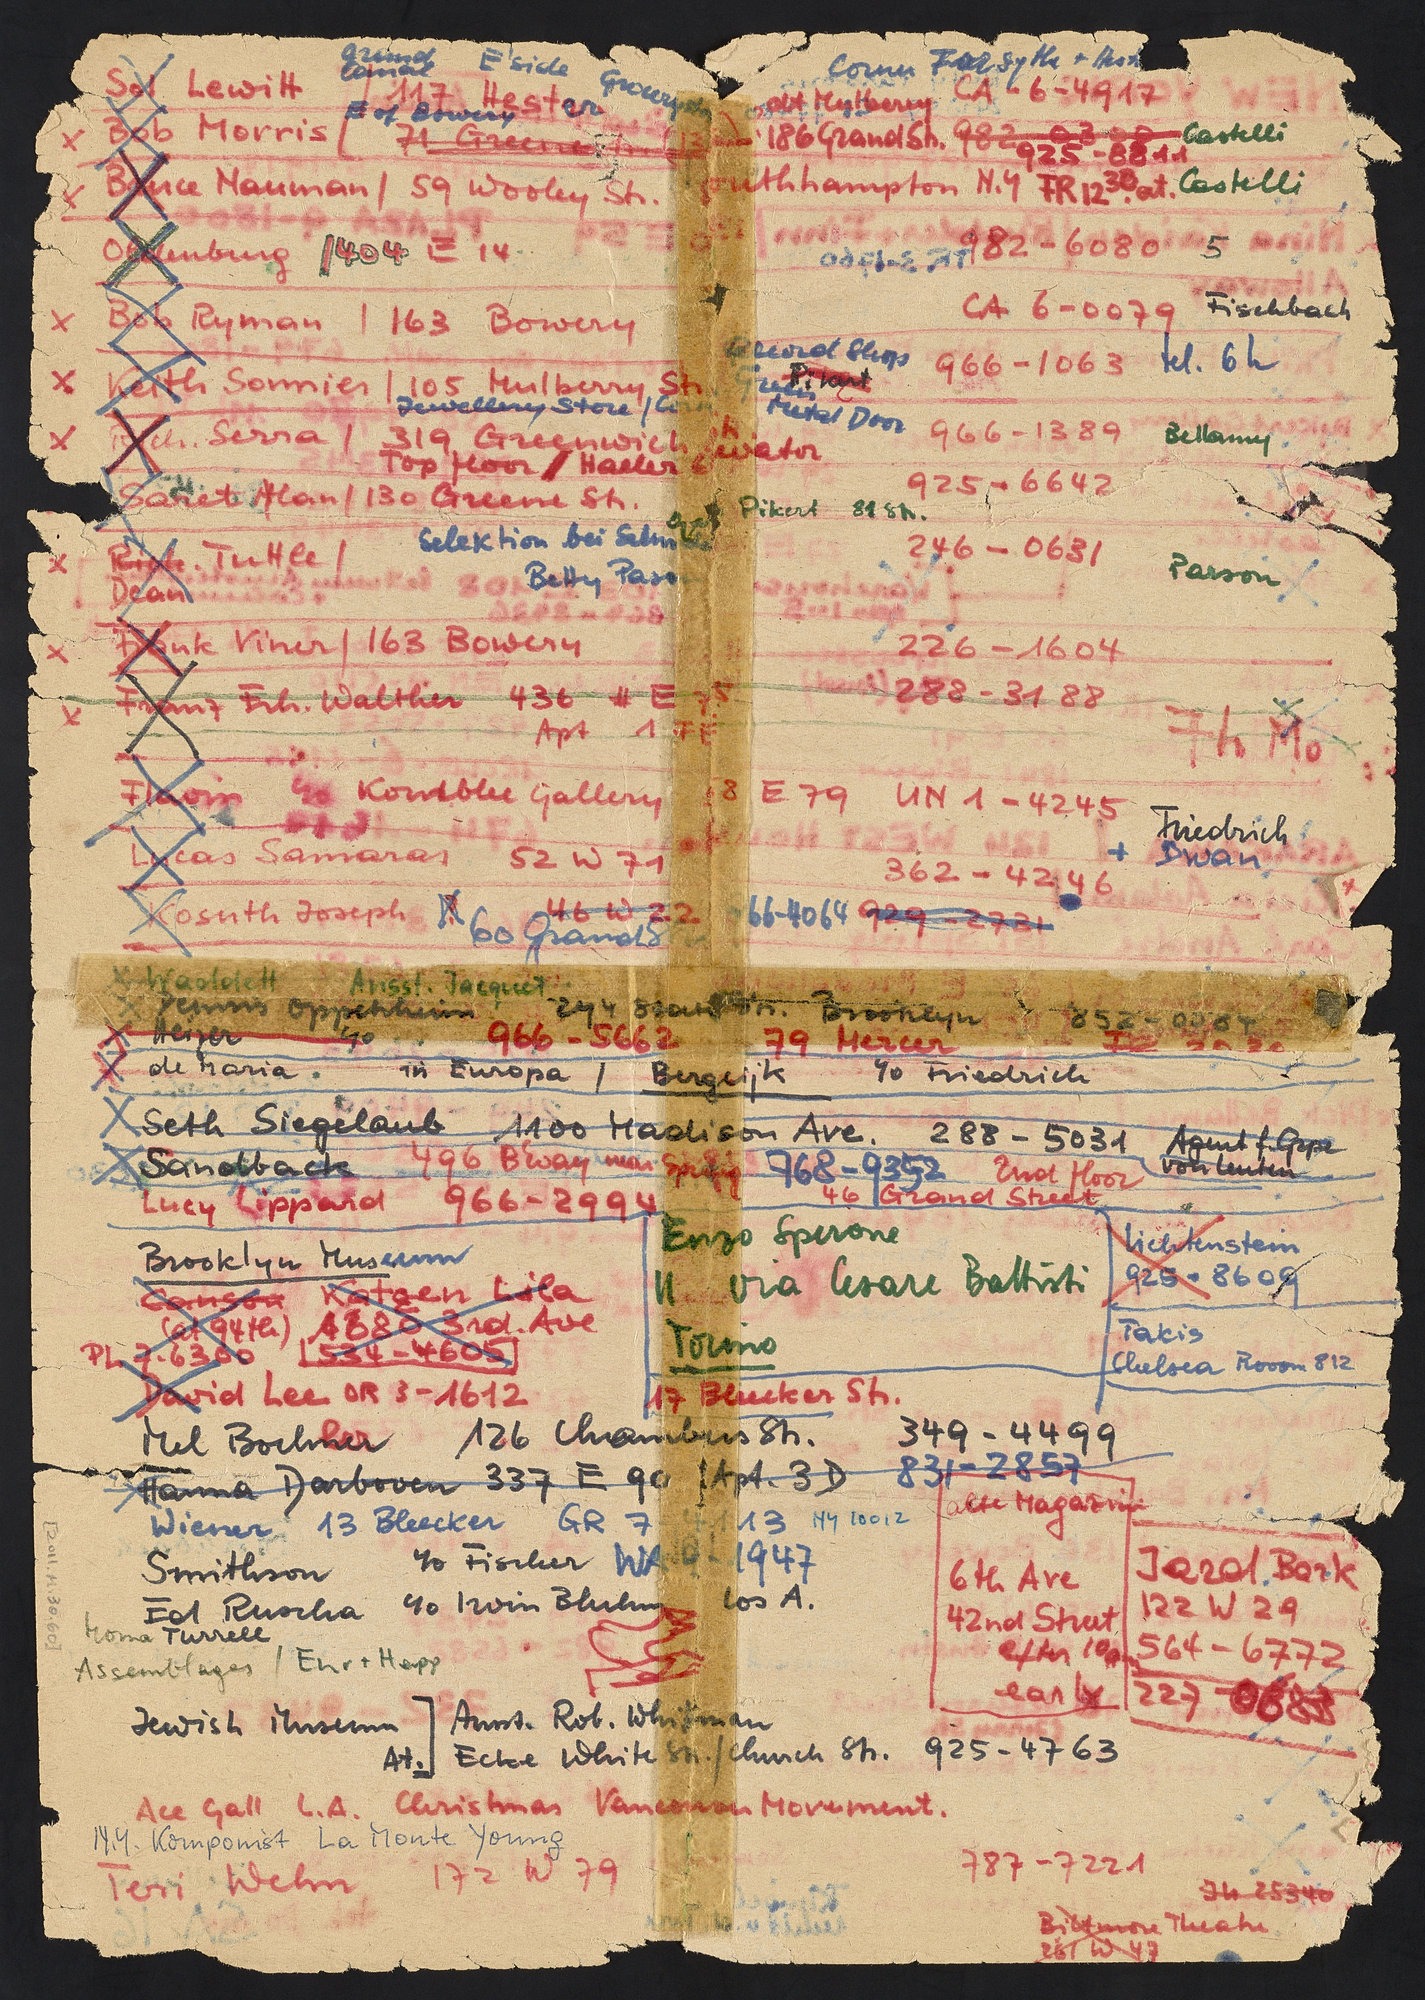 grand E'side Corner Forsythe + Hest
canal
Sol Lewitt / 117 Hester CA - 6-4917
E of Bowery
Bob Morris / 71 Greene 186 Grand Str. 982-0300 Castelli
925-8811
Bruce Nauman / 59 Wooley Str. Southhampton N.Y FR 12 30. at. Castelli
Oldenburg / 404 E 14 982-6080 5
Bob Ryman / 163 Bowery CA 6-0079 Fischbach
Keith Sonnier / 105 Mulberry Str. 966-1063 tel. 6h
Jewellery Store / Metal Door
Rich. Serra / 319 Greenwich Str 966-1389 Bellamy
Top floor / Haeler elevator
Saret Alan / 130 Greene Str. 925-6642
Pikert 81 Str.
Rich. Tuttle / Selektion bei 246-0631
Dean Betty Parson Parson
Frank Viner / 163 Bowery 226-1604
Franz Erh. Walther 436 E 75 288-3188
Apt 1 FE 7h Mo
Flavin c/o Kornblee Gallery 58 E 79 UN 1-4245
Friedrich
+ Dwan
Lucas Samaras 52 W 71 362-4246
Kosuth Joseph 46 W 22 66-4064 929-2731
60 Grand S
x Waddell Ausst. Jacquet
x Dennis Oppenheim 244 Str. Brooklyn 852-0087
x Heizer c/o 966-5662 79 Mercer
x de Maria. in Europa / Bergeijk c/o Friedrich
Seth Siegelaub 1100 Madison Ave. 288-5031 Agent f. Gppe
von Leuten
Sandback 496 B'way near Spring 768-9352 2nd floor
46 Grand Street
Lucy Lippard 966-2994
Enzo Sperone
11 via Cesare Battisti
Torino
Lichtenstein
925-8609
Takis
Chelsea Rooom 812
Brooklyn Museum
Canson Katzen Lila
(at 94th) 1680 3rd. Ave
PL 7.6300 534-4605
David Lee OR 3-1612 17 Bleecker Str.
Mel Bochner 126 Chambers Str. 349-4499
Hanna Darboven 337 E 90 / Apt. 3D 831-2857
Wiener 13 Bleecker GR 7-4113 NY 10012
Smithson c/o Fischer WA 9-1947
Ed Ruscha c/o Irvin Bluhm Los A.
alte Magazin
6th Ave
42nd Street
early
Jared Bark
122 W 29
564-6772
227-0683
Moma Turrell
Assemblages / Ehr + Hepp
Jewish Museum ] Ausst. Rob. Whitman
At. Ecke White Str. / Church Str. 925-4763
Ace Gall L.A. Christmas Vancouver Movement.
N.Y. Komponist La Monte Young
Teri Wehn 172 W 79 787-7221
JH 25340
Biltmore Theatre
261 W 47
[2011.M.30.60]